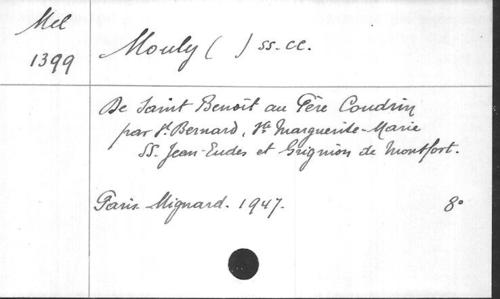 Mel
1399
Mouly ( ) ss. cc.
De Saint Benoît au Père Coudrin
par St Bernard, Ste Marguerite-Marie
SS. Jean-Eudes et Grignion de Montfort.
Paris. Mignard. 1947. 8°